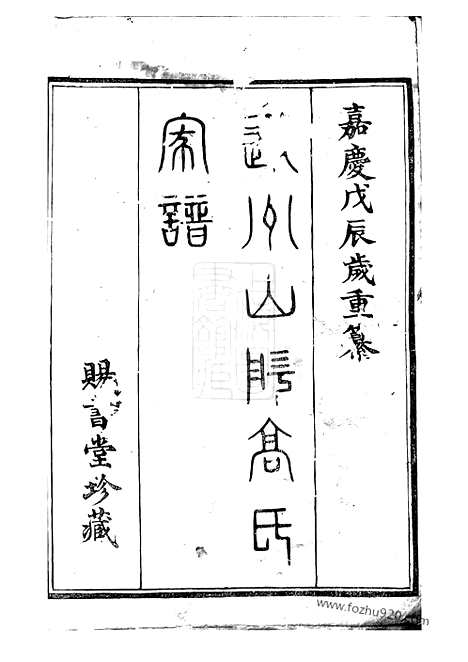 嘉慶戊辰歲重纂
山高氏
家譜
賜書堂珍藏
www.fozhu920.com